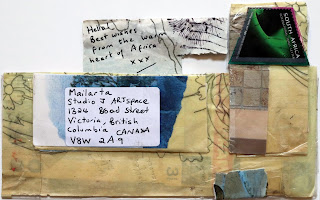 Hello!
Best wishes
from the warm
heart of Africa
xxx
SOUTH AFRICA
Mailarta
Studio J ARTspace
1324 Broad Street
Victoria, British
Columbia CANADA
V8W 2A9